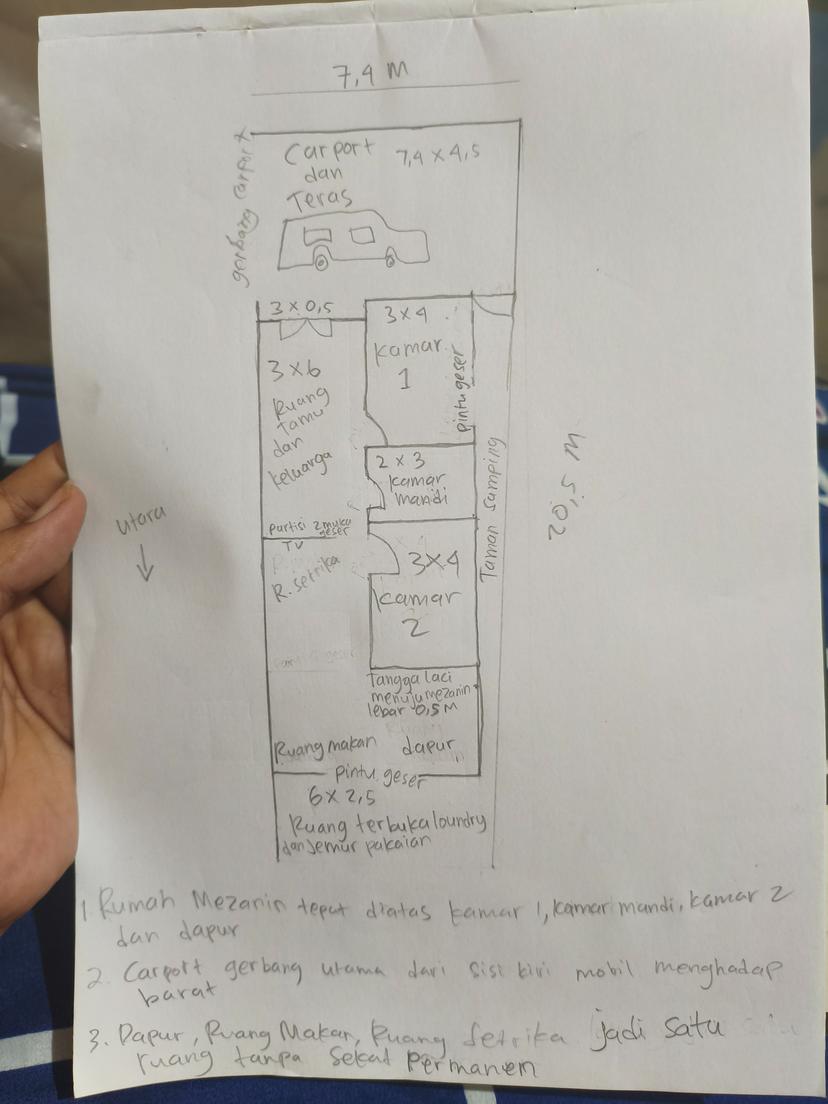 7,4 M
Carport
dan
Teras
7,4 x 4,5
gerbang carport
3 x 0,5
3 x 4
Kamar
1
pintu geser
3 x 6
Ruang
Tamu
dan
keluarga
2 x 3
Kamar
mandi
Taman Samping
20,5 M
utara
partisi 2 muka
geser
TV
R. Setrika
3 x 4
Kamar
2
Tangga laci
menuju mezanin
lebar 0,5 M
Ruang makan
dapur
pintu geser
6 x 2,5
Ruang terbuka loundry
dan Jemur pakaian
1. Rumah Mezanin teput diatas kamar 1, kamar mandi, kamar 2
dan dapur
2. Carport gerbang utama dari sisi kiri mobil menghadap
barat
3. Dapur, Ruang Makan, Ruang Setrika jadi satu
ruang tanpa Sekat Permanen